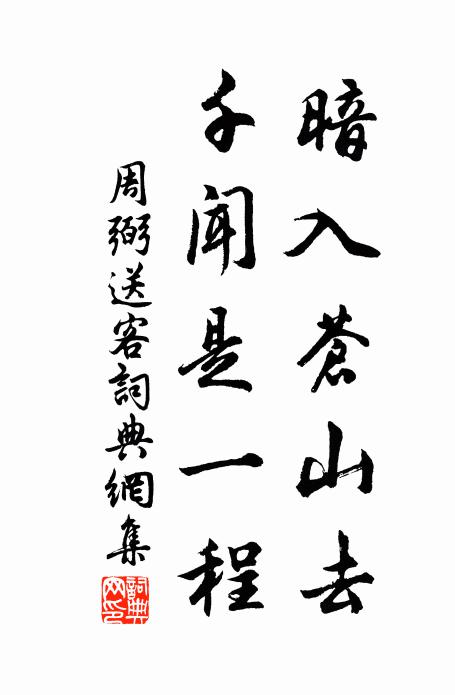 暗入蒼山去
千聞是一程
周弼送客詞典網集
詞典网印